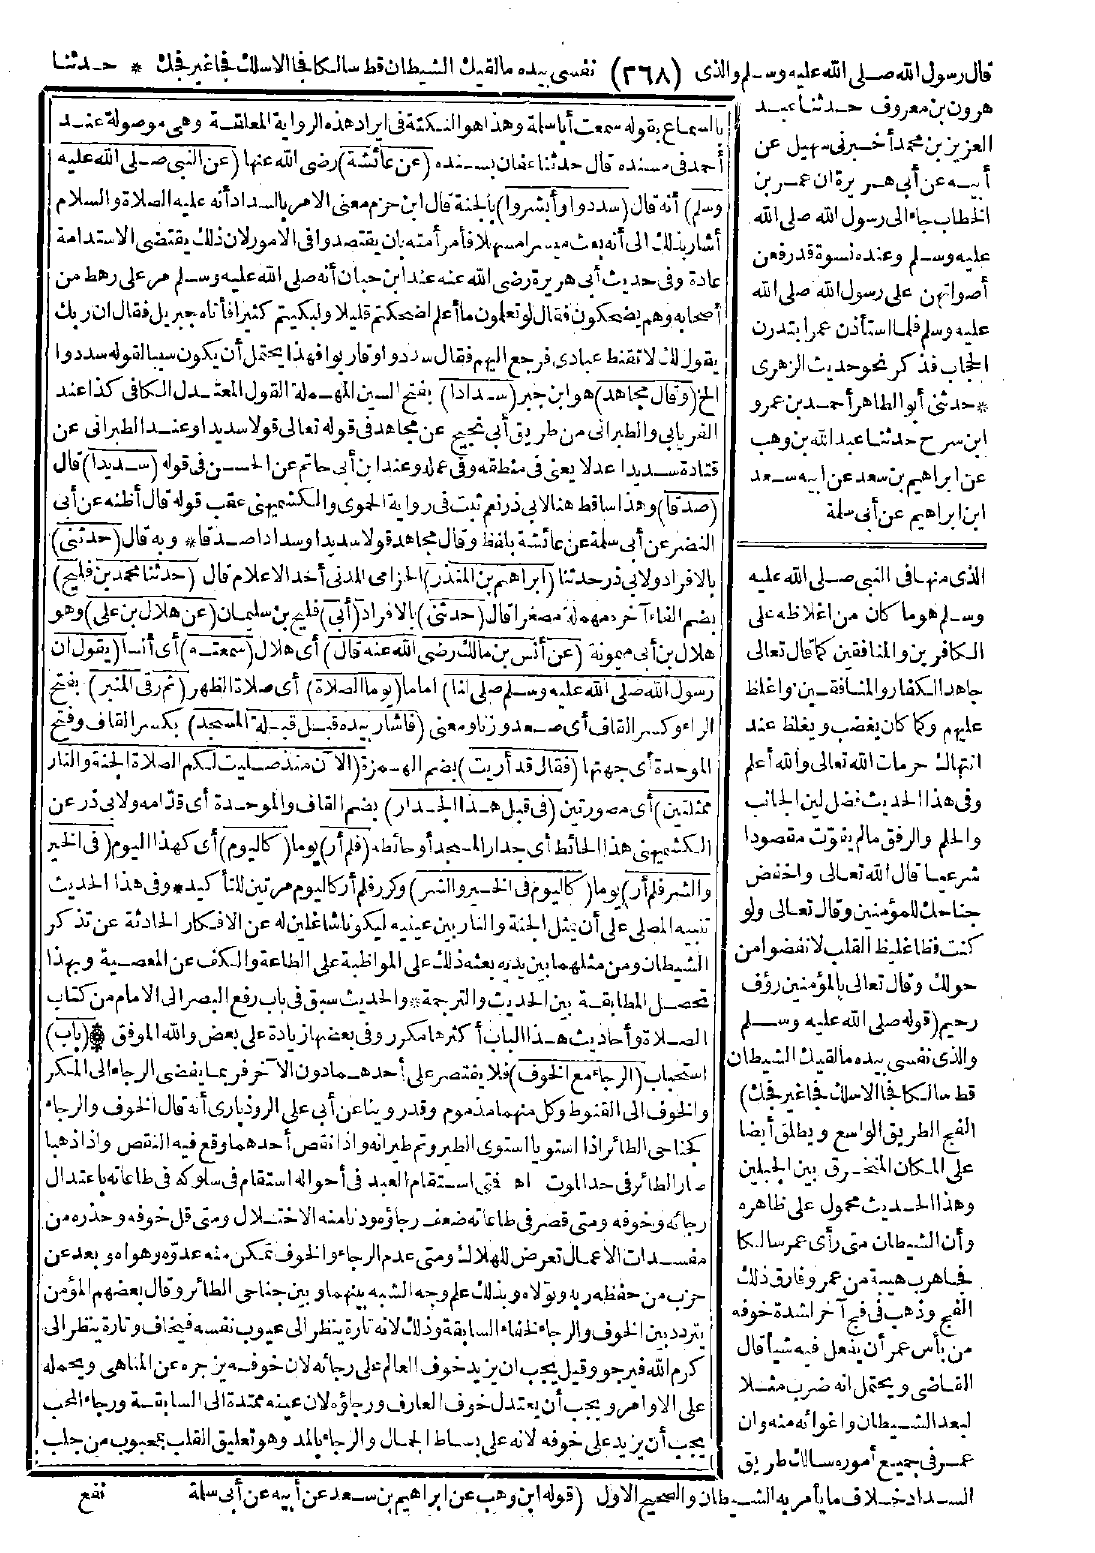 قال رسول الله صلى الله عليه وسلم والذى (٣٦٨) نفسى بيده مالقيك الشيطان قط سالكا فجا الا سلك فجا غير فجك * حدثنا
هرون بن معروف حدثنا عبد
العزيز بن محمد أخبرنى سهيل عن
أبيه عن أبى هريرة ان عمر بن
الخطاب جاء الى رسول الله صلى الله
عليه وسلم وعنده نسوة قد رفعن
أصواتهن على رسول الله صلى الله
عليه وسلم فلما استأذن عمر ابتدرن
الحجاب فذكر نحو حديث الزهرى
* حدثنى أبو الطاهر أحمد بن عمرو
ابن سرح حدثنا عبد الله بن وهب
عن ابراهيم بن سعد عن ابيه سعد
ابن ابراهيم عن أبى سلمة
بالسماع بقوله سمعت أبا سلمة وهذا هو النكتة فى ايراد هذه الرواية المعلقة وهى موصولة عند
أحمد فى مسنده قال حدثنا عفان بسنده (عن عائشة) رضى الله عنها (عن النبى صلى الله عليه
وسلم) أنه قال (سددوا وأبشروا) بالجنة قال ابن حزم معنى الامر بالسداد أنه عليه الصلاة والسلام
أشار بذلك الى أنه بعث ميسرا مسهلا فأمر أمته بان يقتصدوا فى الامور لان ذلك يقتضى الاستدامة
عادة وفى حديث أبى هريرة رضى الله عنه عند ابن حبان أنه صلى الله عليه وسلم مر على رهط من
أصحابه وهم يضحكون فقال لو تعلمون ما أعلم لضحكتم قليلا ولبكيتم كثيرا فأتاه جبريل فقال ان ربك
يقول لك لا تقنط عبادى فرجع اليهم فقال سددوا وقاربوا فهذا يحتمل أن يكون سببا لقوله سددوا
الخ (وقال مجاهد) هو ابن جبر (سدادا) بفتح السين المهملة القول المعتدل الكافى كذا عند
الفريابى والطبرانى من طريق أبى نجيح عن مجاهد فى قوله تعالى قولا سديدا وعند الطبرانى عن
قتادة سديدا عدلا يعنى فى منطقه وفى عمله وعند ابن أبى حاتم عن الحسن فى قوله (سديدا) قال
(صدقا) وهذا ساقط هنا لابى ذر نعم ثبت فى رواية الحموى والكشميهنى عقب قوله قال أظنه عن أبى
النضر عن أبى سلمة عن عائشة بلفظ وقال مجاهد قولا سديدا وسدادا صدقا * وبه قال (حدثنى)
بالافراد ولابى ذر حدثنا (ابراهيم بن المنذر) الحزامى المدنى أحد الاعلام قال (حدثنا محمد بن فليح)
بضم الفاء آخره مهملة مصغرا قال (حدثنى) بالافراد (أبى) فليح بن سليمان (عن هلال بن على) وهو
هلال بن أبى ميمونة (عن أنس بن مالك رضى الله عنه قال) أى هلال (سمعته) أى أنسا (يقول ان
رسول الله صلى الله عليه وسلم صلى لنا) اماما (يوما الصلاة) أى صلاة الظهر (ثم رقى المنبر) بفتح
الراء وكسر القاف أى صعد وزنا ومعنى (فأشار بيده قبل قبلة المسجد) بكسر القاف وفتح
الموحدة أى جهتها (فقال قد أريت) بضم الهمزة (الآن منذ صليت لكم الصلاة الجنة والنار
ممثلتين) أى مصورتين (فى قبل هذا الجدار) بضم القاف والموحدة أى قدّامه ولابى ذر عن
الكشميهنى هذا الحائط أى جدار المسجد أو حائطه (فلم أر) يوما (كاليوم) أى كهذا اليوم (فى الخير
والشر فلم أر) يوما (كاليوم فى الخير والشر) وكرر فلم أر كاليوم مرتين للتأكيد * وفى هذا الحديث
تنبيه المصلى على أن يمثل الجنة والنار بين عينيه ليكونا شاغلين له عن الافكار الحادثة عن تذكر
الشيطان ومن مثلهما بين يديه بعثه ذلك على المواظبة على الطاعة والكف عن المعصية وبهذا
تحصل المطابقة بين الحديث والترجمة * والحديث سبق فى باب رفع البصر الى الامام من كتاب
الصلاة وأحاديث هذا الباب أكثرها مكرر وفى بعضها زيادة على بعض والله الموفق * (باب)
استحباب (الرجاء مع الخوف) فلا يقتصر على أحدهما دون الآخر فربما يفضى الرجاء الى المكر
والخوف الى القنوط وكل منهما مذموم وقد روينا عن أبى على الروذبارى أنه قال الخوف والرجاء
كجناحى الطائر اذا استويا استوى الطير وتم طيرانه واذا نقص أحدهما وقع فيه النقص واذا ذهبا
صار الطائر فى حد الموت اه فمتى استقام العبد فى أحواله استقام فى سلوكه فى طاعاته باعتدال
رجائه وخوفه ومتى قصر فى طاعاته ضعف رجاؤه ودنا منه الاختلال ومتى قل خوفه وحذره من
مفسدات الاعمال تعرض للهلاك ومتى عدم الرجاء والخوف تمكن منه عدوّه وهواه وبعد عن
حزب من حفظه ربه وتولاه وبذلك علم وجه الشبه بينهما وبين جناحى الطائر وقال بعضهم المؤمن
يتردد بين الخوف والرجاء لخفاء السابقة وذلك لانه تارة ينظر الى عيوب نفسه فيخاف وتارة ينظر الى
كرم الله فيرجو وقيل يجب ان يزيد خوف العالم على رجائه لان خوفه يزجره عن المناهى ويحمله
على الاوامر ويجب أن يعتدل خوف العارف ورجاؤه لان عينه ممتدة الى السابقة ورجاء المحب
يجب أن يزيد على خوفه لانه على بساط الجمال والرجاء بالمد وهو تعليق القلب بمحبوب من جلب
الذى منها فى النبى صلى الله عليه
وسلم هو ما كان من اغلاظه على
الكافرين والمنافقين كما قال تعالى
جاهد الكفار والمنافقين واغلظ
عليهم وكما كان يغضب ويغلظ عند
انتهاك حرمات الله تعالى والله أعلم
وفى هذا الحديث فضل لين الجانب
والحلم والرفق مالم يفوّت مقصودا
شرعيا قال الله تعالى واخفض
جناحك للمؤمنين وقال تعالى ولو
كنت فظا غليظ القلب لانفضوا من
حولك وقال تعالى بالمؤمنين رؤف
رحيم (قوله صلى الله عليه وسلم
والذى نفسى بيده مالقيك الشيطان
قط سالكا فجا الا سلك فجا غير فجك)
الفج الطريق الواسع ويطلق أيضا
على المكان المنخرق بين الجبلين
وهذا الحديث محمول على ظاهره
وأن الشيطان متى رأى عمر سالكا
فجا هرب هيبة من عمر وفارق ذلك
الفج وذهب فى فج آخر لشدة خوفه
من بأس عمر أن يفعل فيه شيأ قال
القاضى ويحتمل انه ضرب مثلا
لبعد الشيطان واغوائه منه وان
عمر فى جميع أموره سالك طريق
السداد خلاف ما يأمر به الشيطان والصحيح الاول (قوله ابن وهب عن ابراهيم بن سعد عن أبيه عن أبى سلمة
نفع